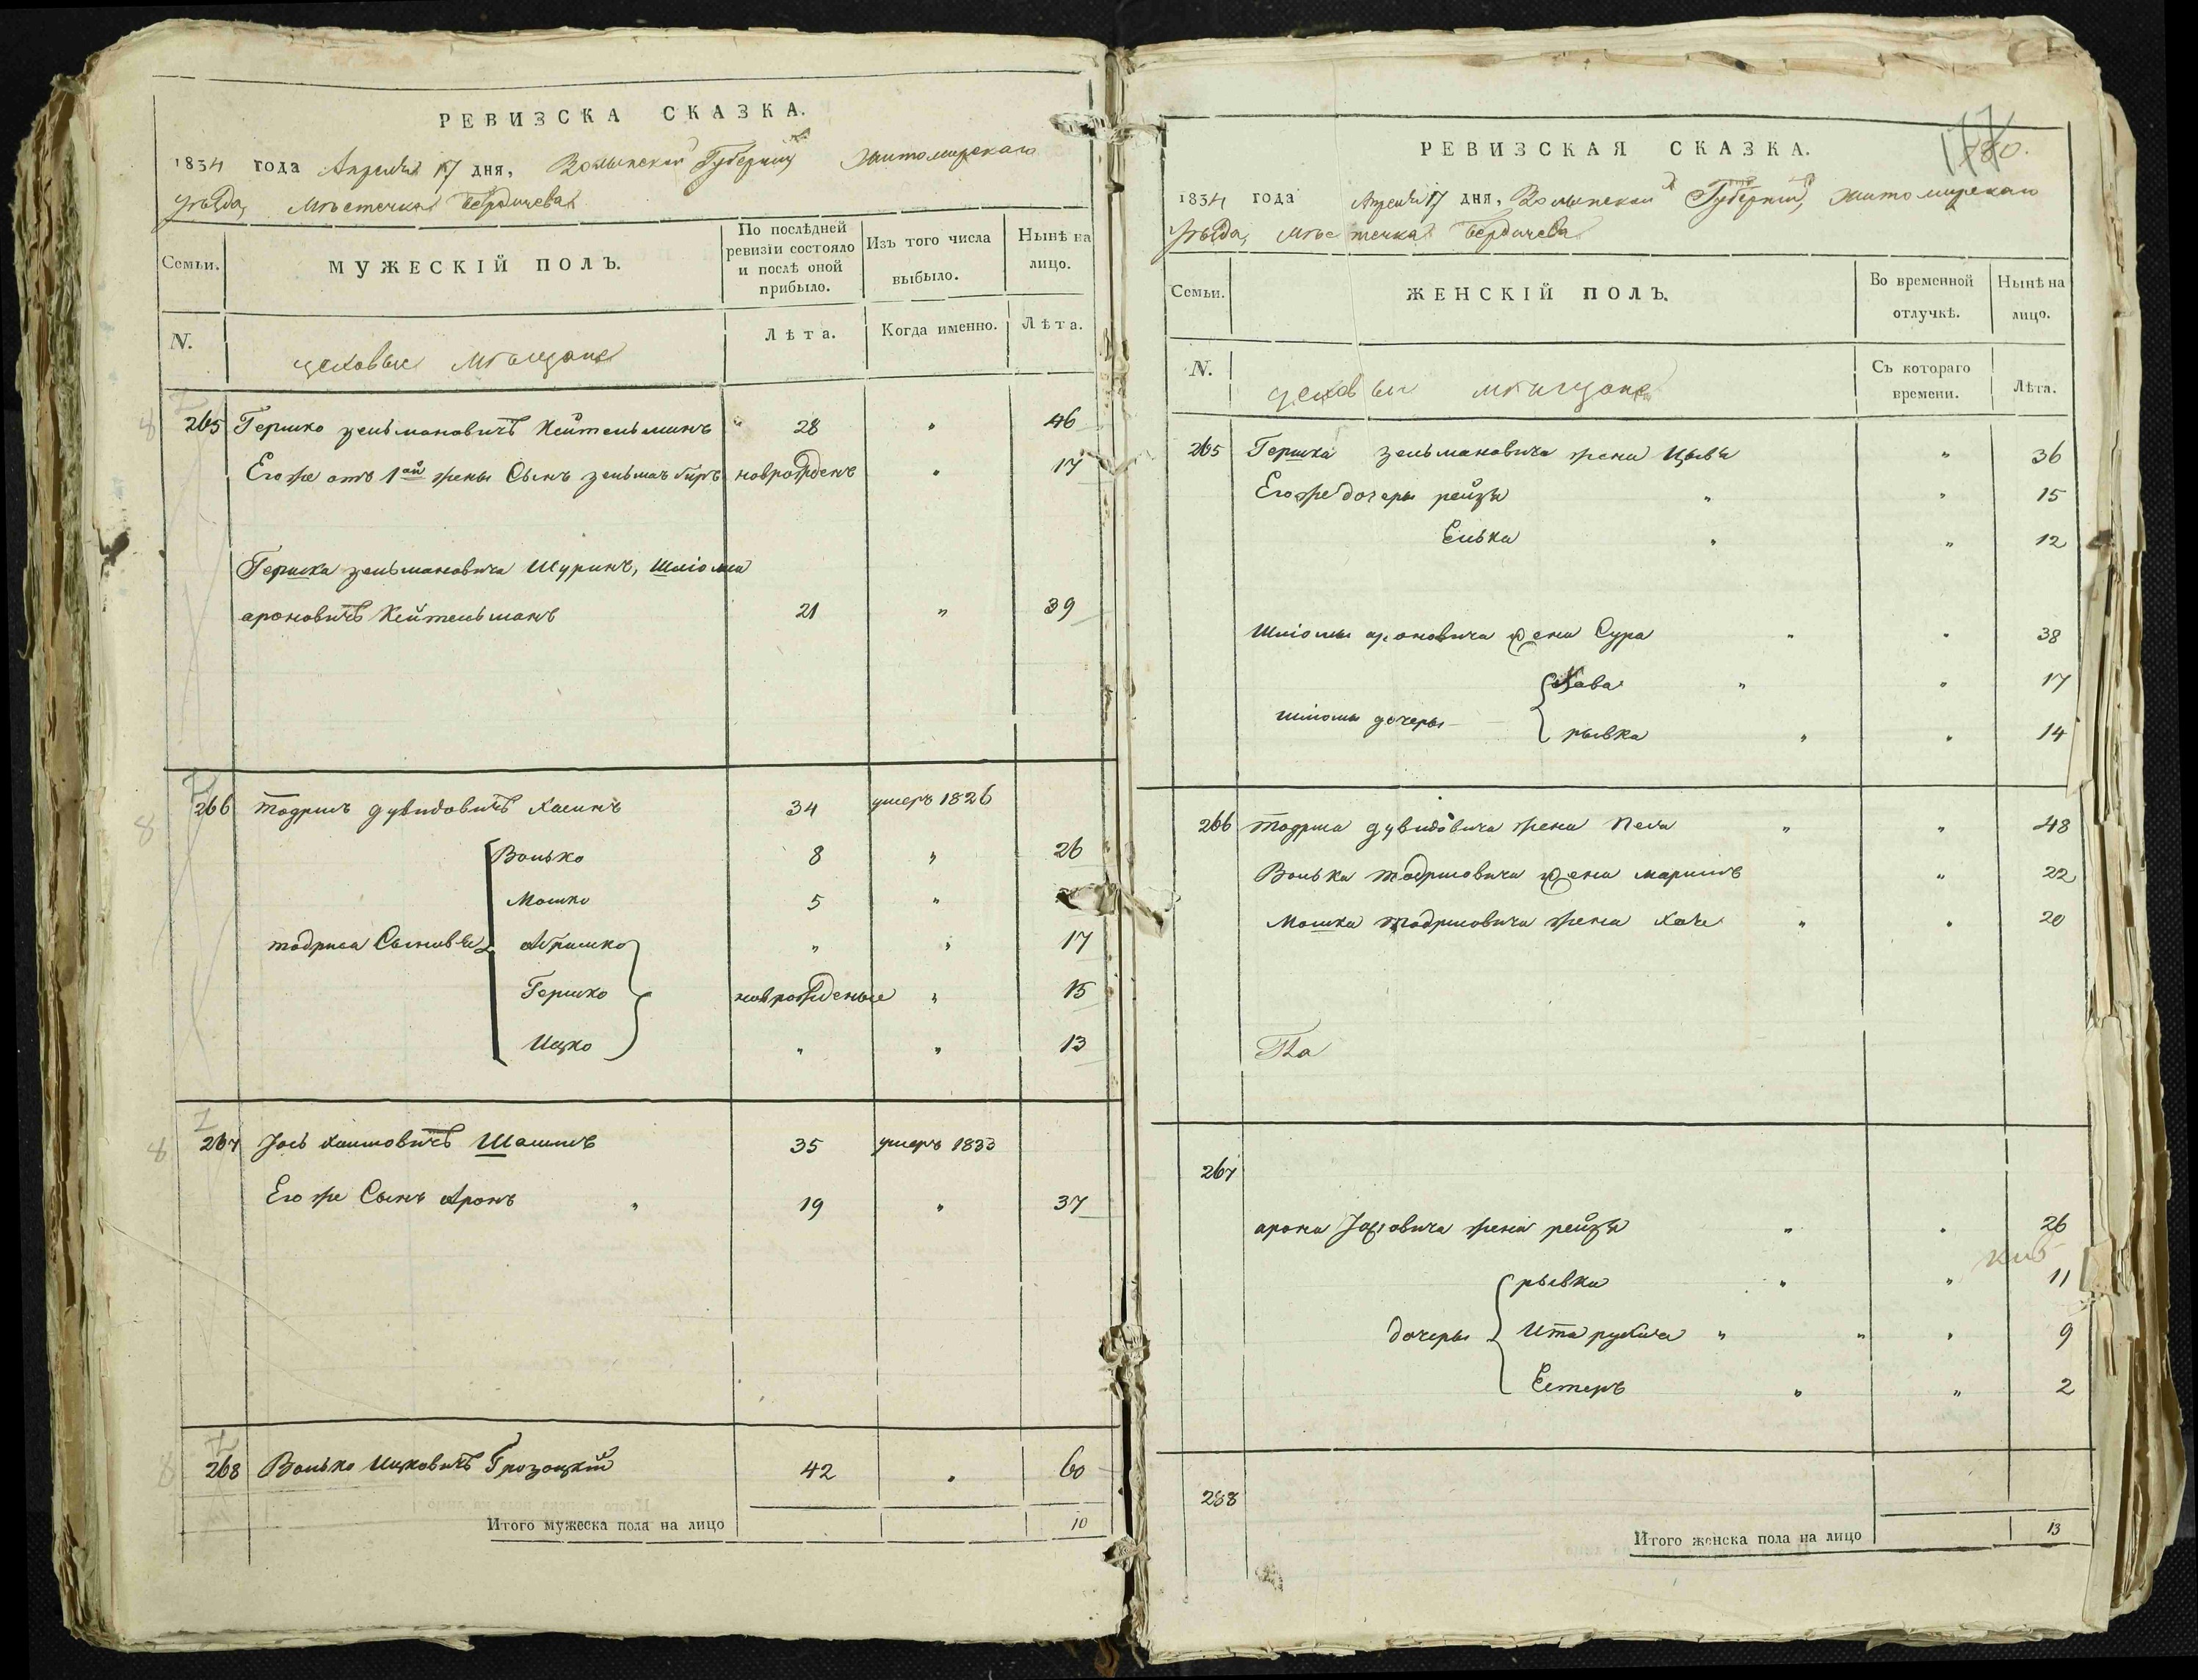 РЕВИЗСКА СКАЗКА.
1834 года Апреля 17 дня, Волынской Губернии Житомирскаго
уѣзда, Мѣстечка Бердичева
Семьи.
МУЖЕСКІЙ ПОЛЪ.
По послѣдней ревизіи состояло и послѣ оной прибыло.
Изъ того числа выбыло.
Нынѣ на лицо.
N.
цеховые мѣщане
Лѣта.
Когда именно.
Лѣта.
265 Гершко зельмановичъ Кейтельманъ 28 " 46
Его же отъ 1ой жены Сынъ зельманъ новрожденъ " 17
Гершка зельмановича Шуринъ, Шліома
ароновичъ Кейтельманъ 21 " 39
266 тодрисъ дувидовичъ Хасинъ 34 умеръ 1826
Волько 8 " 26
Мошко 5 "
тодриса Сыновья Абрамко " " 17
Гершко новрожденые " 15
Ицко " " 13
267 Іось хаимовичъ 35 умеръ 1833
Его же Сынъ Аронъ " 19 " 37
268 Волько Ицковичъ Грозоцкій 42 " 60
Итого мужеска пола на лицо 10
177
180.
РЕВИЗСКАЯ СКАЗКА.
1834 года Апреля 17 дня, Волынской Губернии, Житомирскаго
уѣзда, мѣстечка Бердичева
Семьи.
ЖЕНСКІЙ ПОЛЪ.
Во временной отлучкѣ.
Нынѣ на лицо.
N.
цеховые мѣщане
Съ котораго времени.
Лѣта.
265 Гершка зельмановича жена Цивья " 36
Его же дочеры рейзя " " 15
Елька " " 12
Шліомы ароновича жена Сура " " 38
Хава " " 17
шліомы дочеры
рывка " " 14
266 тодриса дувидовича жена Песя " " 48
Волька тодрисовича жена маримъ " 22
Мошка тодрисовича жена хаче " " 20
267
арона Іосовича жена рейзя " " 26
рывка " " 11
дочеры Ита рухля " " " 9
Естеръ " " 2
288
Итого женска пола на лицо 13